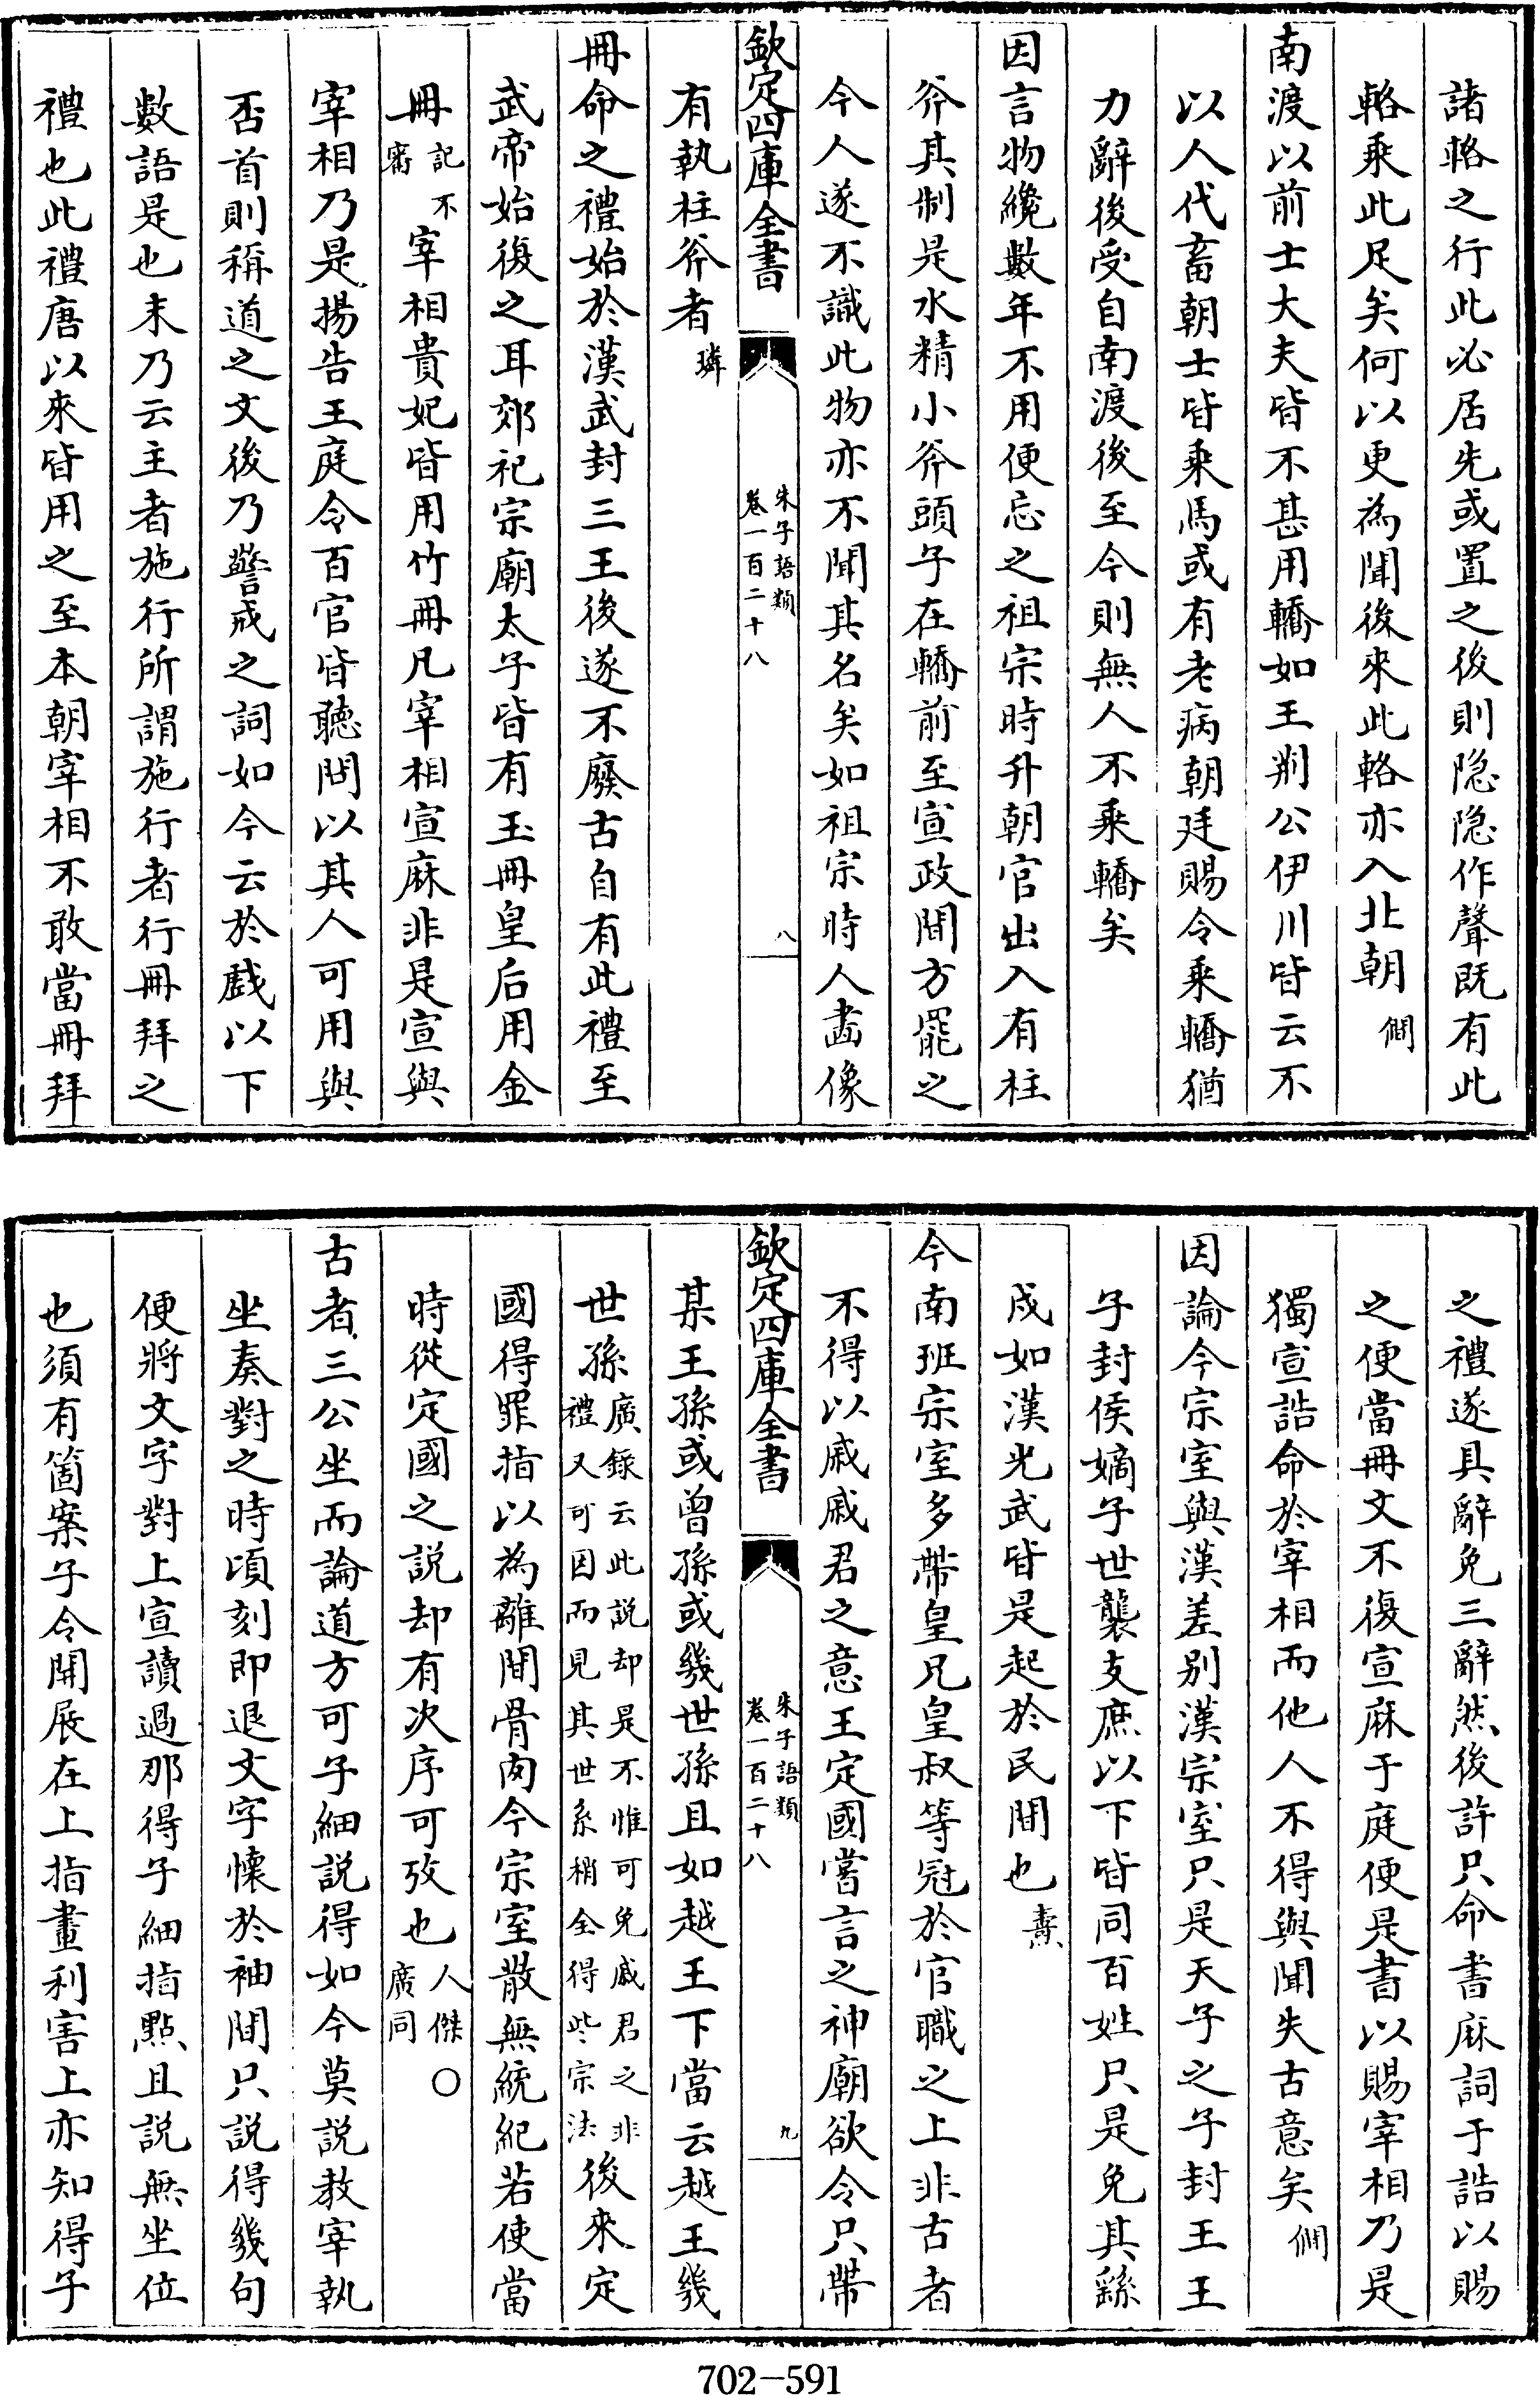 諸輅之行此必居先或置之後則隐隐作聲既有此
輅乘此足矣何以更為聞後來此輅亦入北朝僩
南渡以前士大夫皆不甚用轎如王荆公伊川皆云不
以人代畜朝士皆乘馬或有老病朝廷賜令乘轎猶
力辭後受自南渡後至今則無人不乘轎矣
因言物纔數年不用便忘之祖宗時升朝官出入有柱
斧其制是水精小斧頭子在轎前至宣政間方罷之
今人遂不識此物亦不聞其名矣如祖宗時人畵像
有執柱斧者璘
欽定四庫全書
朱子語類
卷一百二十八
八
冊命之禮始於漢武封三王後遂不廢古自有此禮至
武帝始復之耳郊祀宗廟太子皆有玉冊皇后用金
冊記不審宰相貴妃皆用竹冊凡宰相宣麻非是宣與
宰相乃是揚告王庭令百官皆聽問以其人可用與
否首則稱道之文後乃警戒之詞如今云於戲以下
數語是也末乃云主者施行所謂施行者行冊拜之
禮也此禮唐以來皆用之至本朝宰相不敢當冊拜
之禮遂具辭免三辭然後許只命書麻詞于誥以賜
之便當冊文不復宣麻于庭便是書以賜宰相乃是
獨宣誥命於宰相而他人不得與聞失古意矣僩
因論今宗室與漢差别漢宗室只是天子之子封王王
子封侯嫡子世襲支庶以下皆同百姓只是免其繇
戍如漢光武皆是起於民間也燾
今南班宗室多帶皇兄皇叔等冠於官職之上非古者
不得以戚戚君之意王定國嘗言之神廟欲令只帶
欽定四庫全書
朱子語類
卷一百二十八
九
某王孫或曾孫或幾世孫且如越王下當云越王幾
世孫廣錄云此說却是不惟可免戚君之非禮又可因而見其世系稍全得些宗法後來定
國得罪指以為離間骨肉今宗室散無統紀若使當
時從定國之說却有次序可攷也人傑○廣同
古者三公坐而論道方可子細說得如今莫說教宰執
坐奏對之時頃刻即退文字懷於袖間只說得幾句
便將文字對上宣讀過那得子細指點且說無坐位
也須有箇案子令開展在上指畫利害上亦知得子
702-591